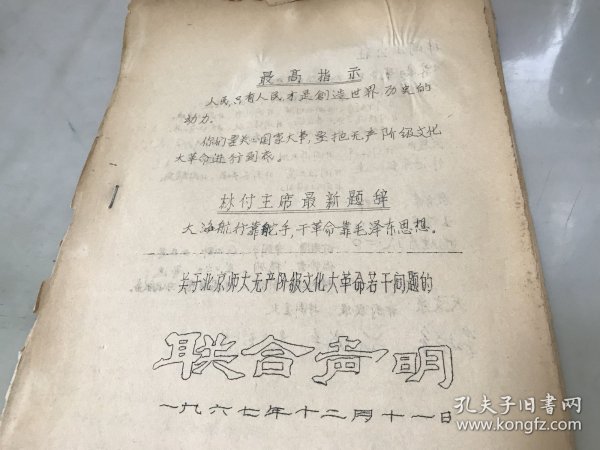 最高指示
人民,只有人民,才是创造世界历史的
动力.
你们要关心国家大事,要把无产阶级文化
大革命进行到底.
林付主席最新题辞
大海航行靠舵手,干革命靠毛泽东思想.
关于北京师大无产阶级文化大革命若干问题的
联合声明
一九六七年十二月十一日
孔夫子旧书网
www.kongfz.com